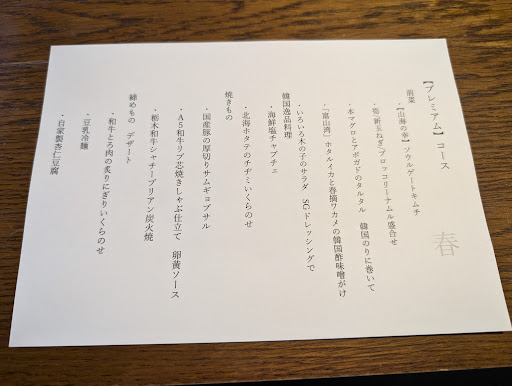 【プレミアム】コース
春
前菜
・【山海の幸】ソウルデートキムチ
・筍/新玉ねぎ/ブロッコリーナムル盛合せ
・本マグロとアボガドのタルタル 韓国のりに巻いて
・「富山湾」ホタルイカと春摘ワカメの韓国酢味噌がけ
・いろいろ木の子のサラダ SGドレッシングで
韓国逸品料理
・海鮮塩チャプチェ
・北海ホタテのチヂミいくらのせ
焼きもの
・国産豚の厚切りサムギョプサル
・A5和牛リブ芯焼きしゃぶ仕立て 卵黄ソース
・栃木和牛シャテーブリアン炭火焼
締めもの デザート
・和牛とろ肉の炙りにぎりいくらのせ
・豆乳冷麺
・自家製杏仁豆腐